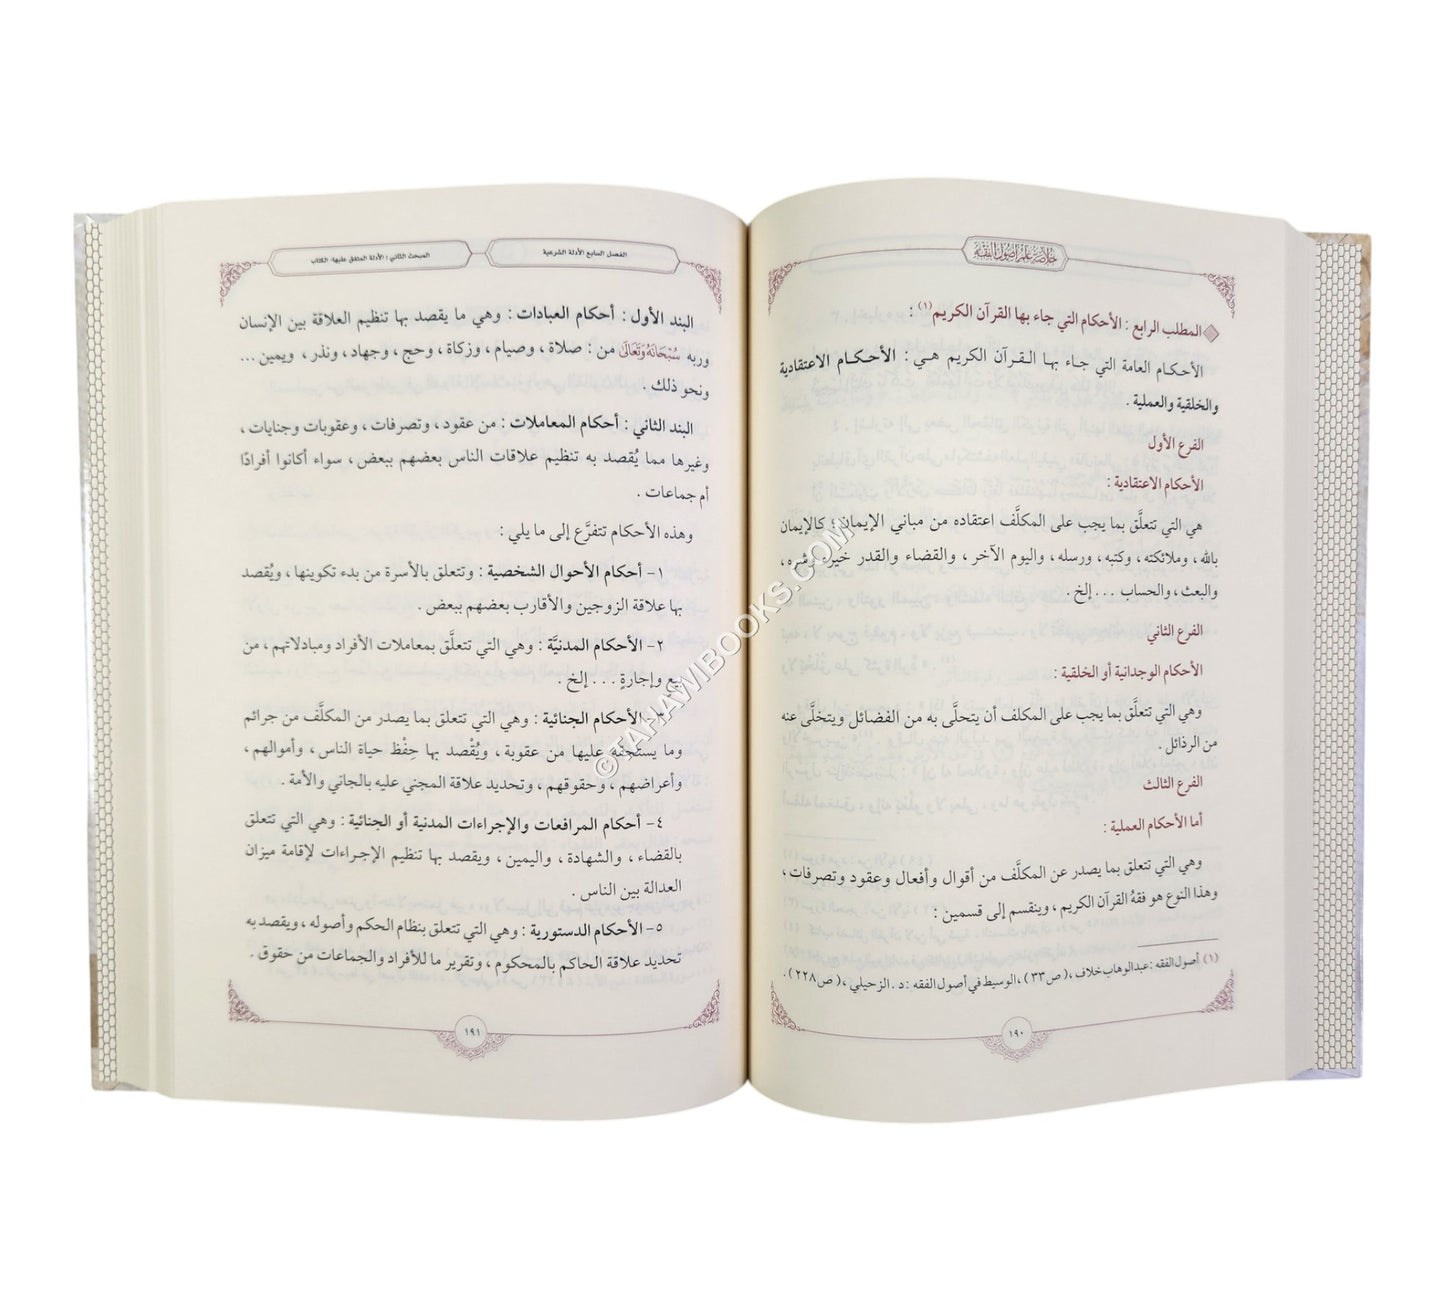 خلاصة علم أصول الفقه
المطلب الرابع : الأحكام التي جاء بها القرآن الكريم(١) :
الأحكام العامة التي جاء بها القرآن الكريم هي : الأحكام الاعتقادية
والخلقية والعملية .
الفرع الأول
الأحكام الاعتقادية :
هي التي تتعلَّق بما يجب على المكلَّف اعتقاده من مباني الإيمان ؛ كالإيمان
بالله ، وملائكته ، وكتبه ، ورسله ، واليوم الآخر ، والقضاء والقدر خيره وشره ،
والبعث ، والحساب . . . إلخ .
الفرع الثاني
الأحكام الوجدانية أو الخلقية :
وهي التي تتعلَّق بما يجب على المكلف أن يتحلَّى به من الفضائل ويتخلَّى عنه
من الرذائل .
الفرع الثالث
أما الأحكام العملية :
وهي التي تتعلق بما يصدر عن المكلَّف من أقوال وأفعال وعقود وتصرفات ،
وهذا النوع هو فقهُ القرآن الكريم ، وينقسم إلى قسمين :
(١) أصول الفقه : عبد الوهاب خلاف ، ( ص ٣٣ ) ، الوسيط في أصول الفقه : د . الزحيلي ، ( ص ٢٢٨ ) .
١٩٠
الفصل السابع الأدلة الشرعية
المبحث الثاني : الأدلة المتفق عليها: الكتاب
البند الأول : أحكام العبادات : وهي ما يقصد بها تنظيم العلاقة بين الإنسان
وربه سُبْحَانَهُ وَتَعَالَى من : صلاة ، وصيام ، وزكاة ، وحج ، وجهاد ، ونذر ، ويمين ...
ونحو ذلك .
البند الثاني : أحكام المعاملات : من عقود ، وتصرفات ، وعقوبات وجنايات ،
وغيرها مما يُقصد به تنظيم علاقات الناس بعضهم ببعض ، سواء أكانوا أفرادًا
أم جماعات .
وهذه الأحكام تتفرَّع إلى ما يلي :
١- أحكام الأحوال الشخصية : وتتعلق بالأسرة من بدء تكوينها ، ويُقصد
بها علاقة الزوجين والأقارب بعضهم ببعض .
٢- الأحكام المدنيَّة : وهي التي تتعلَّق بمعاملات الأفراد ومبادلاتهم ، من
بيع وإجارةٍ . . . إلخ .
٣- الأحكام الجنائية : وهي التي تتعلق بما يصدر من المكلَّف من جرائم
وما يستحقه عليها من عقوبة ، ويُقْصد بها حِفْظ حياة الناس ، وأموالهم ،
وأعراضهم ، وحقوقهم ، وتحديد علاقة المجني عليه بالجاني والأمة .
٤- أحكام المرافعات والإجراءات المدنية أو الجنائية : وهي التي تتعلق
بالقضاء ، والشهادة ، واليمين ، ويقصد بها تنظيم الإجراءات لإقامة ميزان
العدالة بين الناس .
٥- الأحكام الدستورية : وهي التي تتعلق بنظام الحكم وأصوله ، ويقصد به
تحديد علاقة الحاكم بالمحكوم ، وتقرير ما للأفراد والجماعات من حقوق .
١٩١
©TAHAWIBOOKS.COM